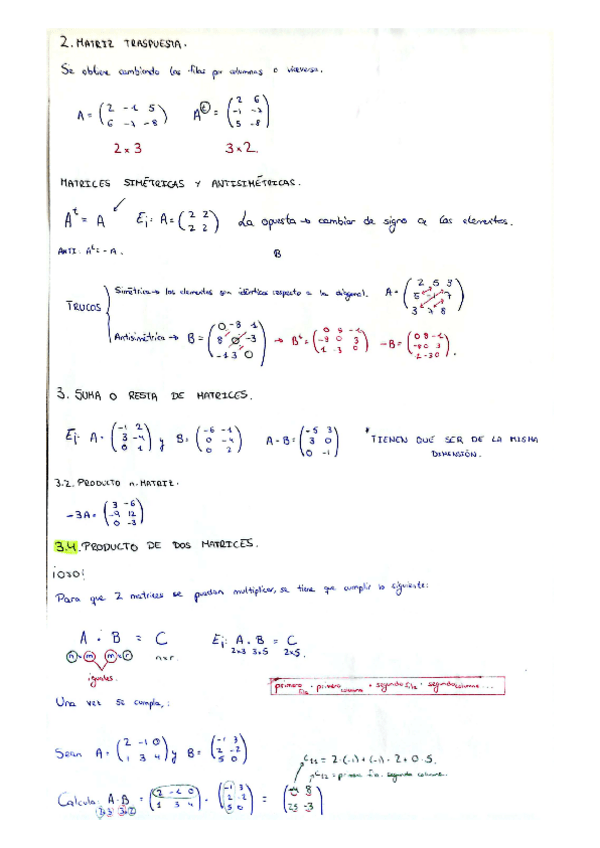 2. MATRIZ TRASPUESTA.
Se obtiene cambiando las filas por columnas o viceversa.
A = (2 -1 5 / 6 -7 -8) A^t = (2 6 / -1 -7 / 5 -8)
2 x 3 3 x 2.
MATRICES SIMÉTRICAS Y ANTISIMÉTRICAS.
A^t = A Ej: A = (2 2 / 2 2) La opuesta → cambiar de signo a los elementos.
ANTI: A^t = -A. B
TRUCOS
Simétrica → los elementos son idénticos respecto a la diagonal. A = (2 5 3 / 5 -1 7 / 3 7 8)
Antisimétrica → B = (0 -8 1 / 8 0 -3 / -1 3 0) → B^t = (0 8 -1 / -8 0 3 / 1 -3 0) -B = (0 8 -1 / -8 0 3 / 1 -3 0).
3. SUMA O RESTA DE MATRICES.
Ej: A = (-1 2 / 3 -4 / 0 1) y B = (-6 -1 / 0 -4 / 0 2) A-B = (-5 3 / 3 0 / 0 -1) * TIENEN QUE SER DE LA MISMA
DIMENSIÓN.
3.2. PRODUCTO n. MATRIZ.
-3A = (3 -6 / -9 12 / 0 -3)
3.4. PRODUCTO DE DOS MATRICES.
¡OJO!
Para que 2 matrices se puedan multiplicar, se tiene que cumplir lo siguiente:
A · B = C Ej: A · B = C
n x m m x r n x r. 2x3 3x5 2x5.
iguales.
primera fila · primera columna + segunda fila · segunda columna...
Una vez se cumpla,:
Sean A = (2 -1 0 / 1 3 4) y B = (-1 3 / 2 -2 / 5 0)
C11 = 2·(-1) + (-1)·2 + 0·5.
C12 = primera fila. segunda columna.
Calcula: A·B = (2 -1 0 / 1 3 4) · (-1 3 / 2 -2 / 5 0) = (-4 8 / 25 -3)
2x3 3x2